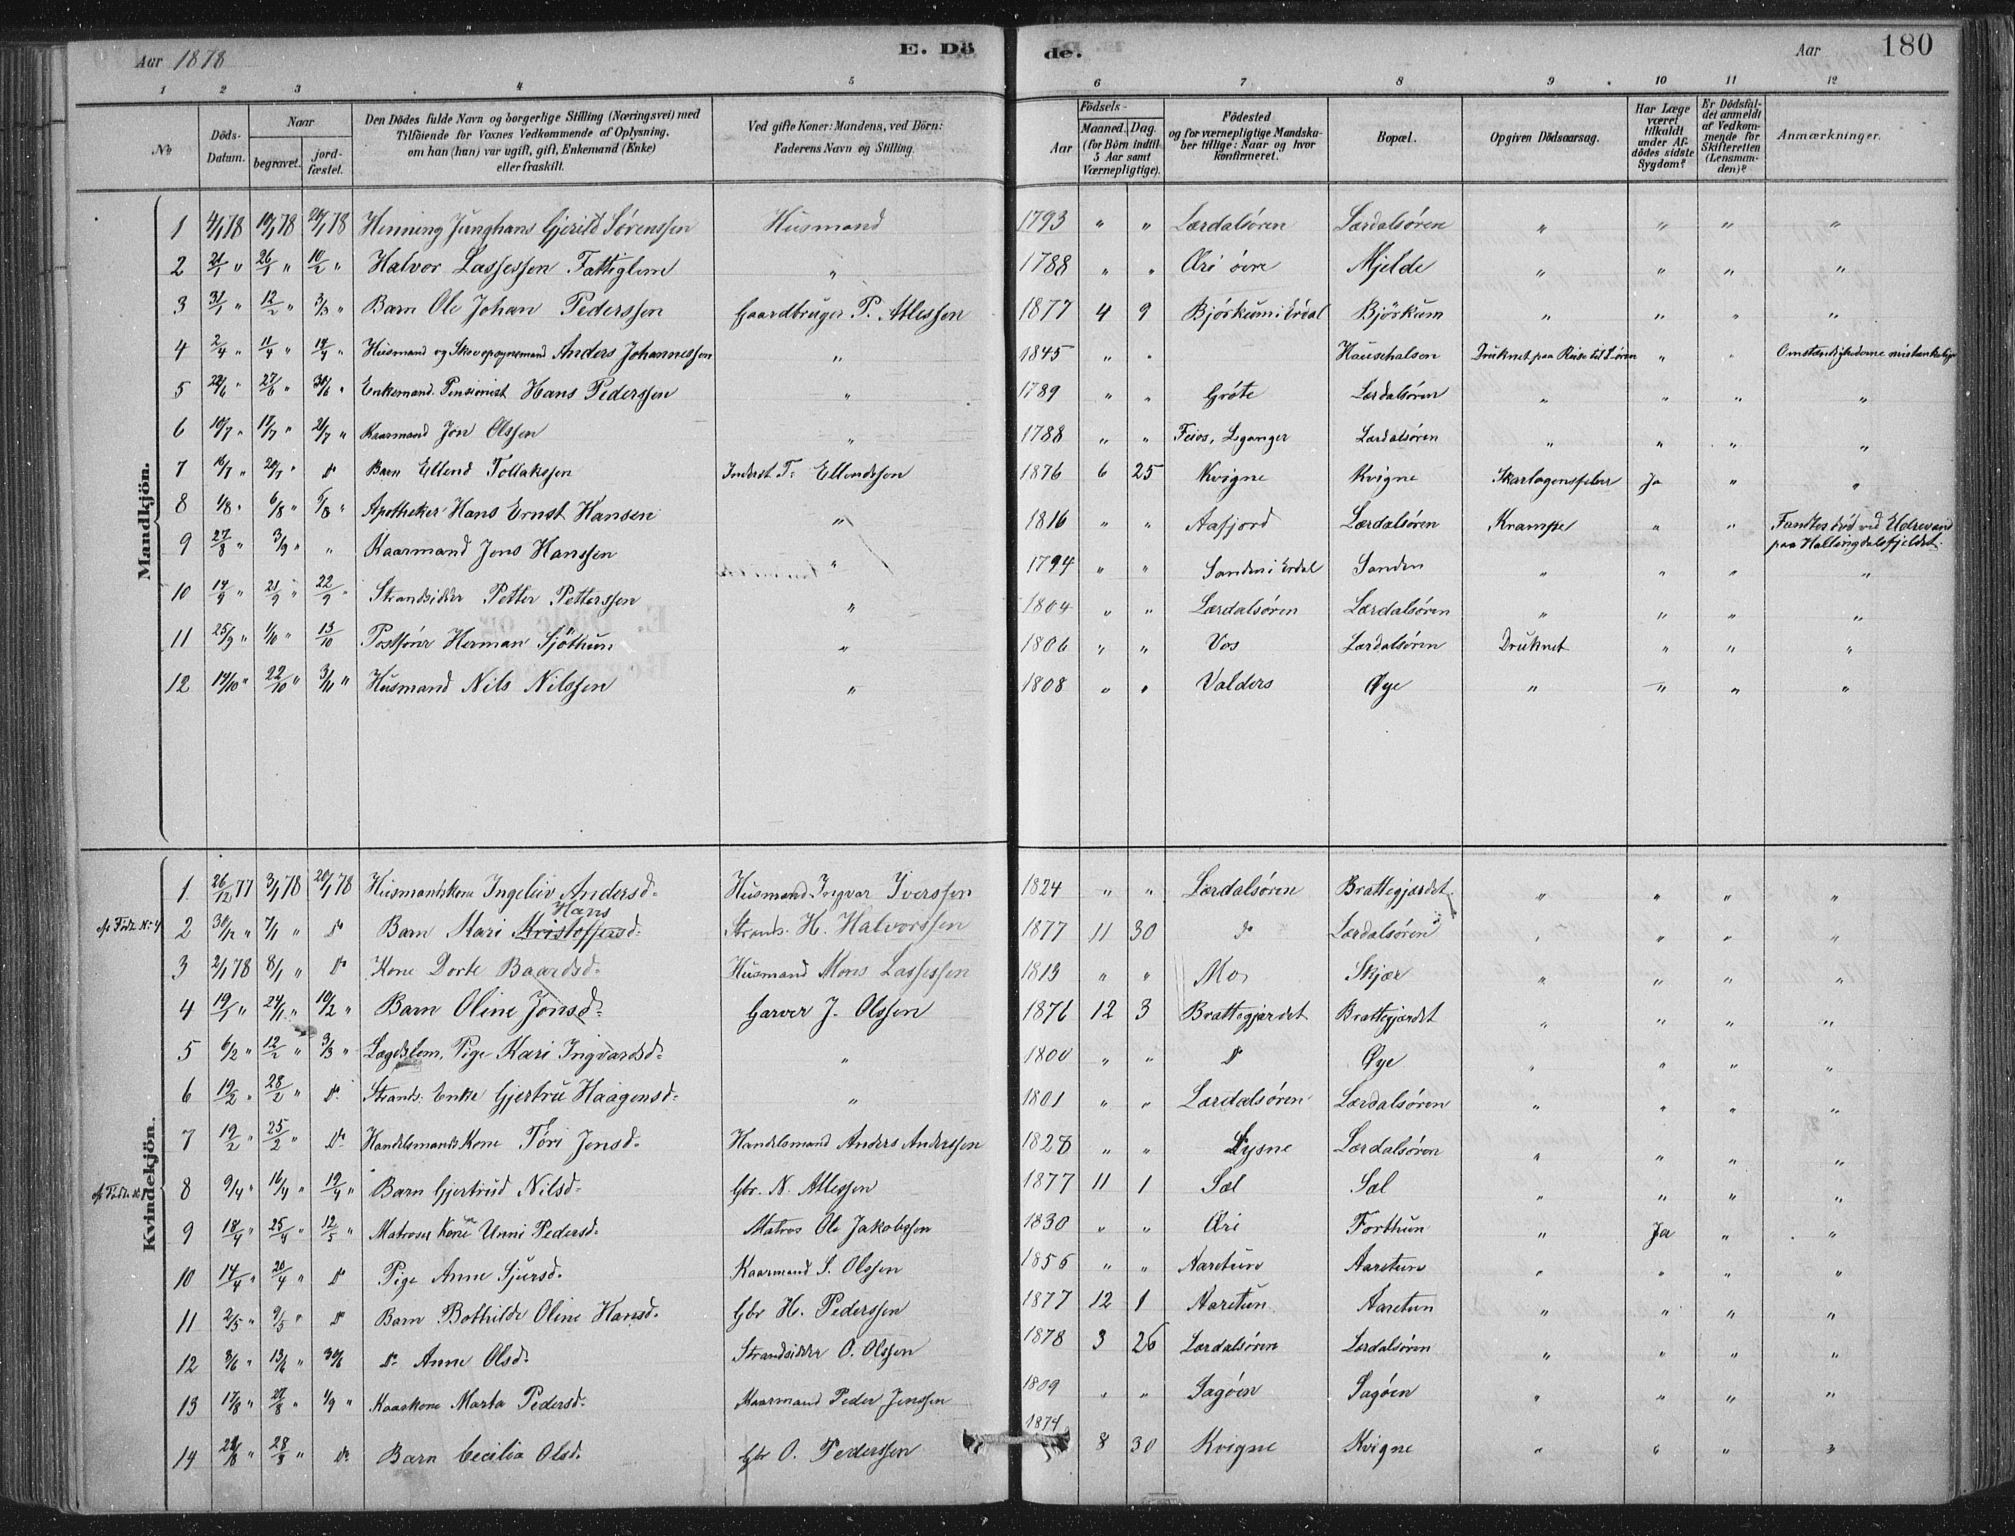 Aar 1878 E. Dö de. Aar 180
1 2 3 4 5 6 7 8 9 10 11 12
No
Döds-Datum.
Naar
begravet.
jord-fæstet.
Den Dödes fulde Navn og borgerlige Stilling (Næringsvei) med
Tilföiende for Voxnes Vedkommende af Oplysning.
om han (hun) var ugift, gift, Enkemand (Enke)
eller fraskilt.
Ved gifte Koner: Mandens, ved Börn:
Faderens Navn og Stilling.
Födsels-
Aar
Maaned. Dag.
(for Börn indtil
5 Aar samt
Værnepligtige).
Födested
og for værnepligtige Mandska-
ber tillige: Naar og hvor
konfirmeret.
Bopæl.
Opgiven Dödsaarsag.
Har Læge
været
tilkaldt
under Af-
dödes sidste
Sygdom?
Er Dödsfal-
det anmeldt
af Vedkom-
mende for
Skifteretten
(Lensman-
den)?
Anmærkninger.
Mandkjön.
1 4/1 78 10/1 78 20/1 78 Henning Junghans Gjerild Sørenssen Husmand 1793 " " Lærdalsören Lærdalsören " " " "
2 21/1 " 26/1 " 10/2 " Halvor Lassessen Fattiglem " 1788 " " Øri övre Mjelde " " " "
3 31/1 " 12/2 " 3/3 " Barn Ole Johan Pederssen Gaardbruger P. Atlessen 1877 4 9 Björkum i Erdal Björkum " " " "
4 2/4 " 11/4 " 14/4 " Husmand og Skovopsynsmand Anders Johannessen " 1845 " " Hausehalsen Druknet paa Reise til Søren " " Omstændighederne mistænkelige
5 22/6 " 27/6 " 30/6 " Enkemand Pensionist Hans Pederssen " 1789 " " Gröte Lærdalsören " " " "
6 10/7 " 17/7 " 21/7 " Kaarmand Jon Olssen " 1788 " " Feios, Leganger Lærdalsören " " " "
7 16/7 " 20/7 " do Barn Ellend Tollakssen Inderst T. Ellendssen 1876 6 25 Kvigne Kvigne Skarlagensfeber Ja " "
8 1/8 " 6/8 " 5/8 " Apotheker Hans Ernst Hansen " 1816 " " Aafjord Lærdalsören Krampe " " Fandtes död ved Eldrevand
paa Hallingdalsfjeldet.
9 27/8 " 3/9 " " Kaarmand Jens Hanssen " 1794 " " Sanden i Erdal Sanden " " " "
10 14/9 " 21/9 " 22/9 " Strandsidder Petter Petterssen " 1804 " " Lærdalsören Lærdalsören " " " "
11 25/9 " 1/10 " 13/10 Postförer Herman Sjöthun " 1806 " " Vos Lærdalsören Druknet " " "
12 14/10 " 22/10 " 3/11 " Husmand Nils Nilssen " 1808 " " Valders Øye " " " "
Kvindekjön.
1 26/12 77 3/1 78 20/1 78 Husmandskone Ingeleiv Andersd. Husmand Ingvar Iverssen 1824 " " Lærdalsören Brattegjærdet " " " "
cfr Födte No 4 2 30/12 " 7/1 " do Barn Kari Kristoffersd. Hans Strands. H. Halvorssen 1877 11 30 do Lærdalsören " " " "
3 2/1 78 8/1 " do Kone Dorte Baardsd. Husmand Mons Lassessen 1813 " " Mo, Skjær " " " "
4 19/1 " 24/1 " 10/2 " Barn Oline Jonsd. Garver J. Olssen 1876 12 3 Brattegjærdet Brattegjærdet " " " "
5 6/2 " 12/2 " 3/3 " Lægdslem, Pige Kari Ingvardsd. " 1800 " " do Øye " " " "
6 19/2 " 28/2 " do Strands. Enke Gjertru Haagensd. " 1801 " " Lærdalsören Lærdalsören " " " "
7 19/2 " 25/2 " do Handelsmands Kone Töri Jensd. Handelsmand Anders Anderssen 1828 " " Lysne Lærdalsören " " " "
8 9/4 " 16/4 " 19/4 " Barn Gjertrud Nilsd. Gbr. N. Atlessen 1877 11 1 Sæl Sæl " " " "
9 18/4 " 25/4 " 12/5 " Matroses Kone Unni Pedersd. Matros Ole Jakobssen 1830 " " Øri Forthun " Ja " "
10 14/4 " 20/4 " do Pige Anne Sjursd. Kaarmand S. Olssen 1856 " " Aaretun Aaretun " " " "
11 2/5 " 9/5 " do Barn Bothilde Oline Hansd. Gbr H. Pederssen 1877 12 1 Aaretun Aaretun " " " "
12 3/6 " 13/6 " 30/6 do Anne Olsd. Strandsidder O. Olssen 1878 3 26 Lærdalsören Lærdalsören " " " "
13 17/8 " 27/8 " 1/9 " Kaarkone Marta Pedersd. Kaarmand Peder Jenssen 1809 " " Sagöen Sagöen " " " "
14 22/8 " 28/8 " do Barn Cecilia Olsd. Gbr O. Pederssen 1874 8 30 Kvigne Kvigne " " " "